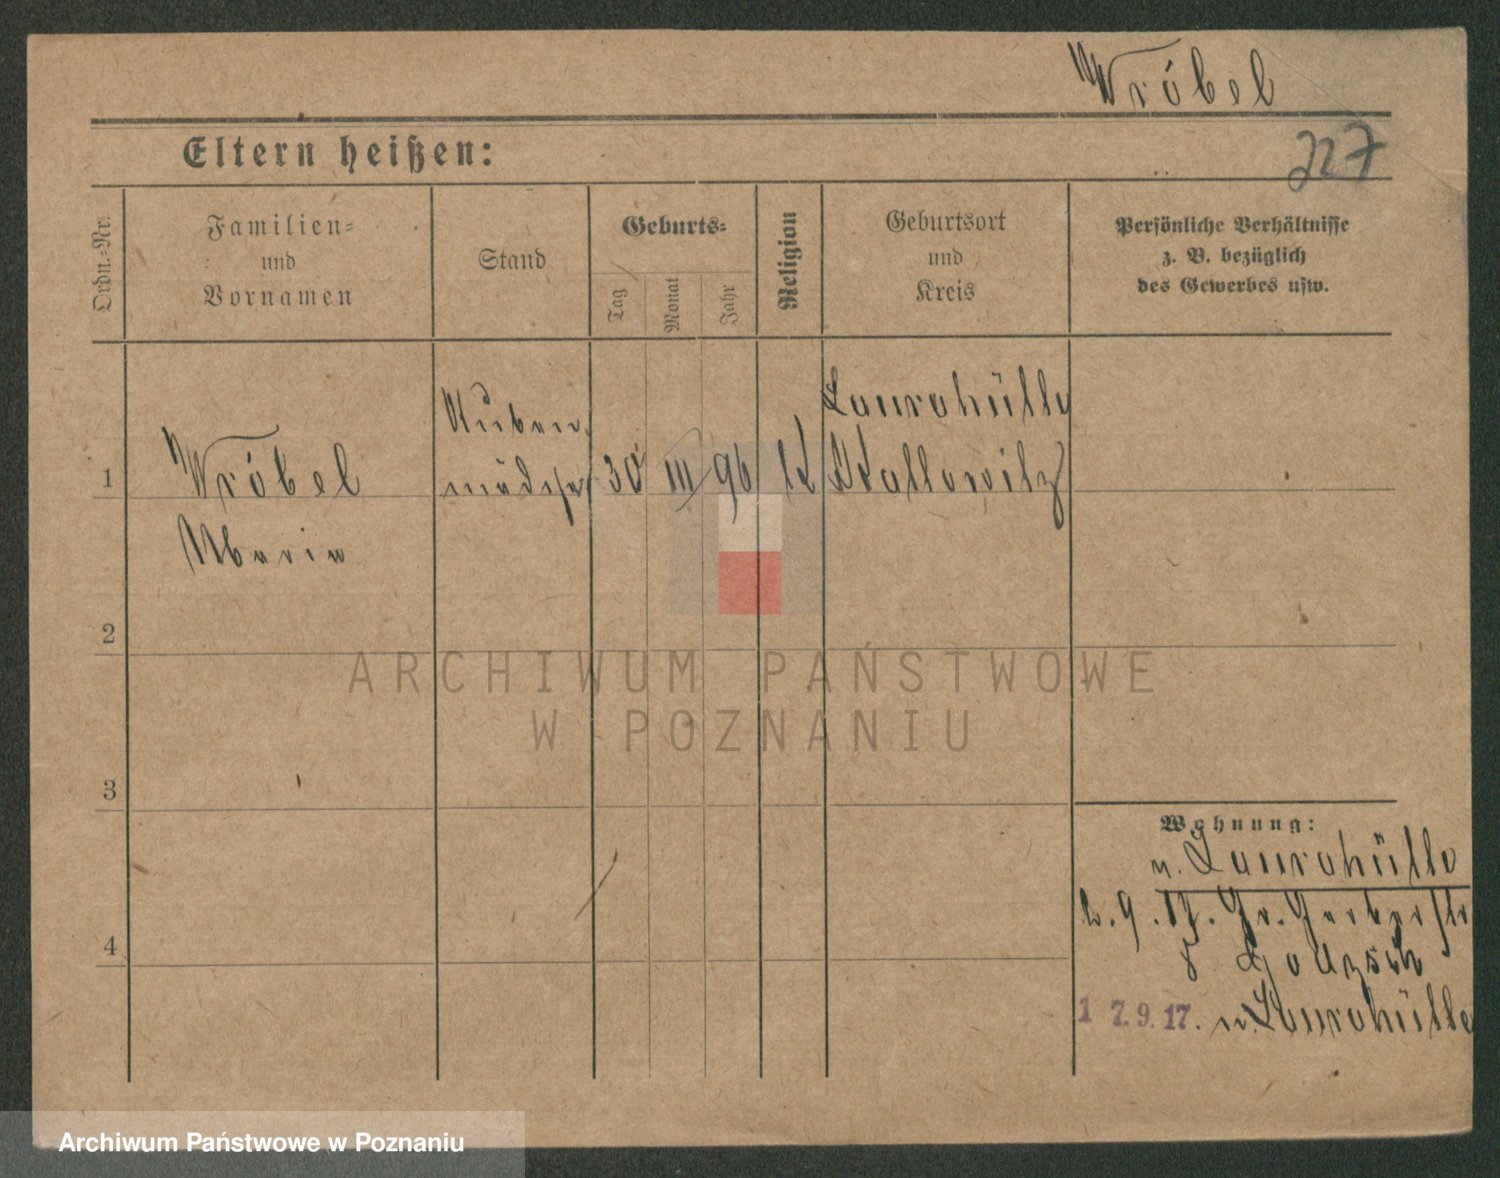 Wróbel
227
Eltern heißen:
Ordn.=Nr.
Familien=
und
Vornamen
Stand
Geburts=
Tag
Monat
Jahr
Religion
Geburtsort
und
Kreis
Persönliche Verhältnisse
z. B. bezüglich
des Gewerbes usw.
1
Wróbel
Maria
Stuben
mädchen
30
III
96
K
Laurahütte
Kattowitz
2
3
4
Wohnung:
n. Laurahütte
2.9.17. Gr. Gerberstr
8
17.9.17. n. Laurahütte
ARCHIWUM PAŃSTWOWE
W POZNANIU
Archiwum Państwowe w Poznaniu